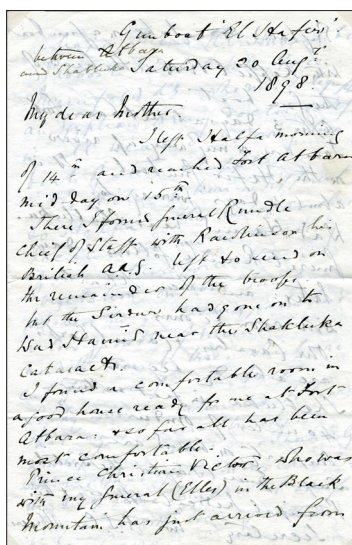 Gunboat 'El Hafir'
between Atbara
and Shabluka Saturday 20 Augst
1898.
My dear Mother.
I left Halfa morning
of 14th and reached Fort Atbara
mid day on 15th
There I found General Rundle
chief of Staff with Rawlinson his
British AAG. left to send on
the remainder of the troops
but the Sirdar had gone on to
Wad Hamid near the Shabluka
cataract.
I found a comfortable room in
a good house ready for me at Fort
Atbara: & so far all has been
most comfortable.
Prince Christian Victor, who was
with my General (Elles) in the Black
Mountain has just arrived from